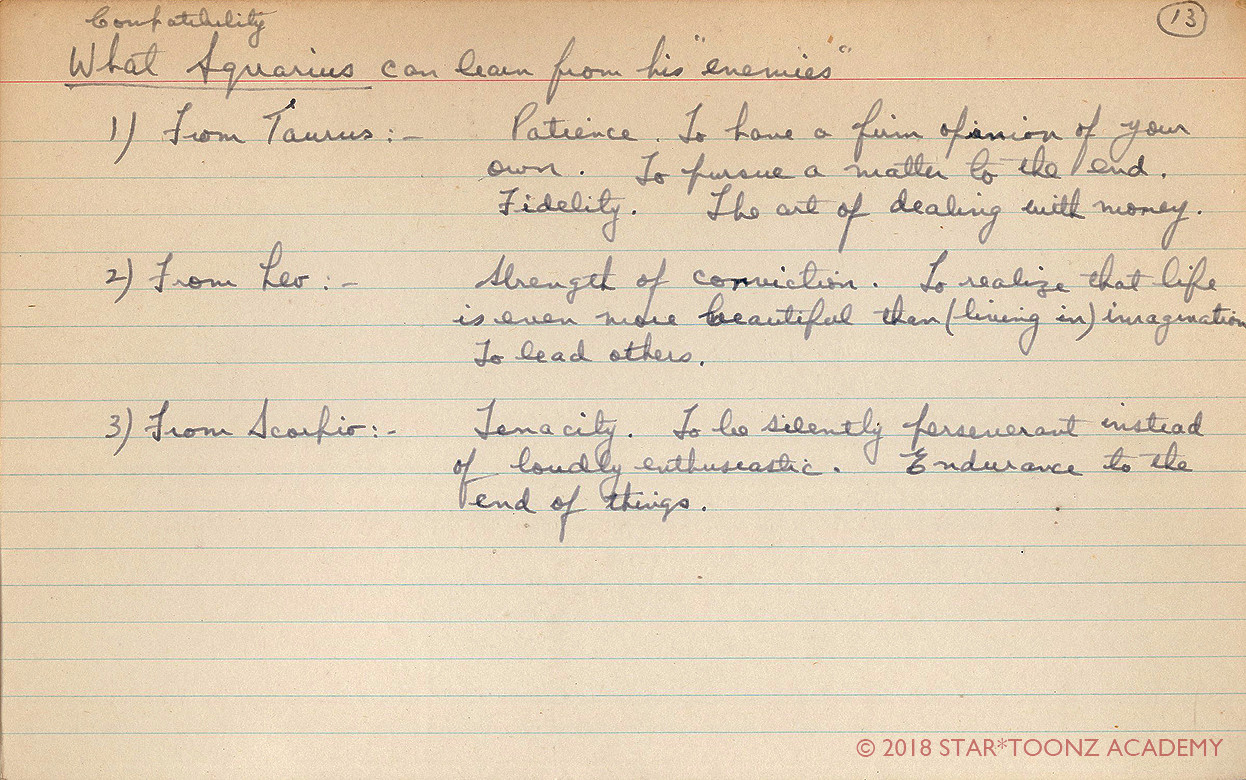 Compatibility
13
What Aquarius can learn from his "enemies"
1) From Taurus:- Patience. To have a firm opinion of your
own. To pursue a matter to the end.
Fidelity. The art of dealing with money.
2) From Leo:- Strength of conviction. To realize that life
is even more beautiful than (living in) imagination
To lead others.
3) From Scorpio:- Tenacity. To be silently perseverant instead
of loudly enthusiastic. Endurance to the
end of things.
© 2018 STAR*TOONZ ACADEMY